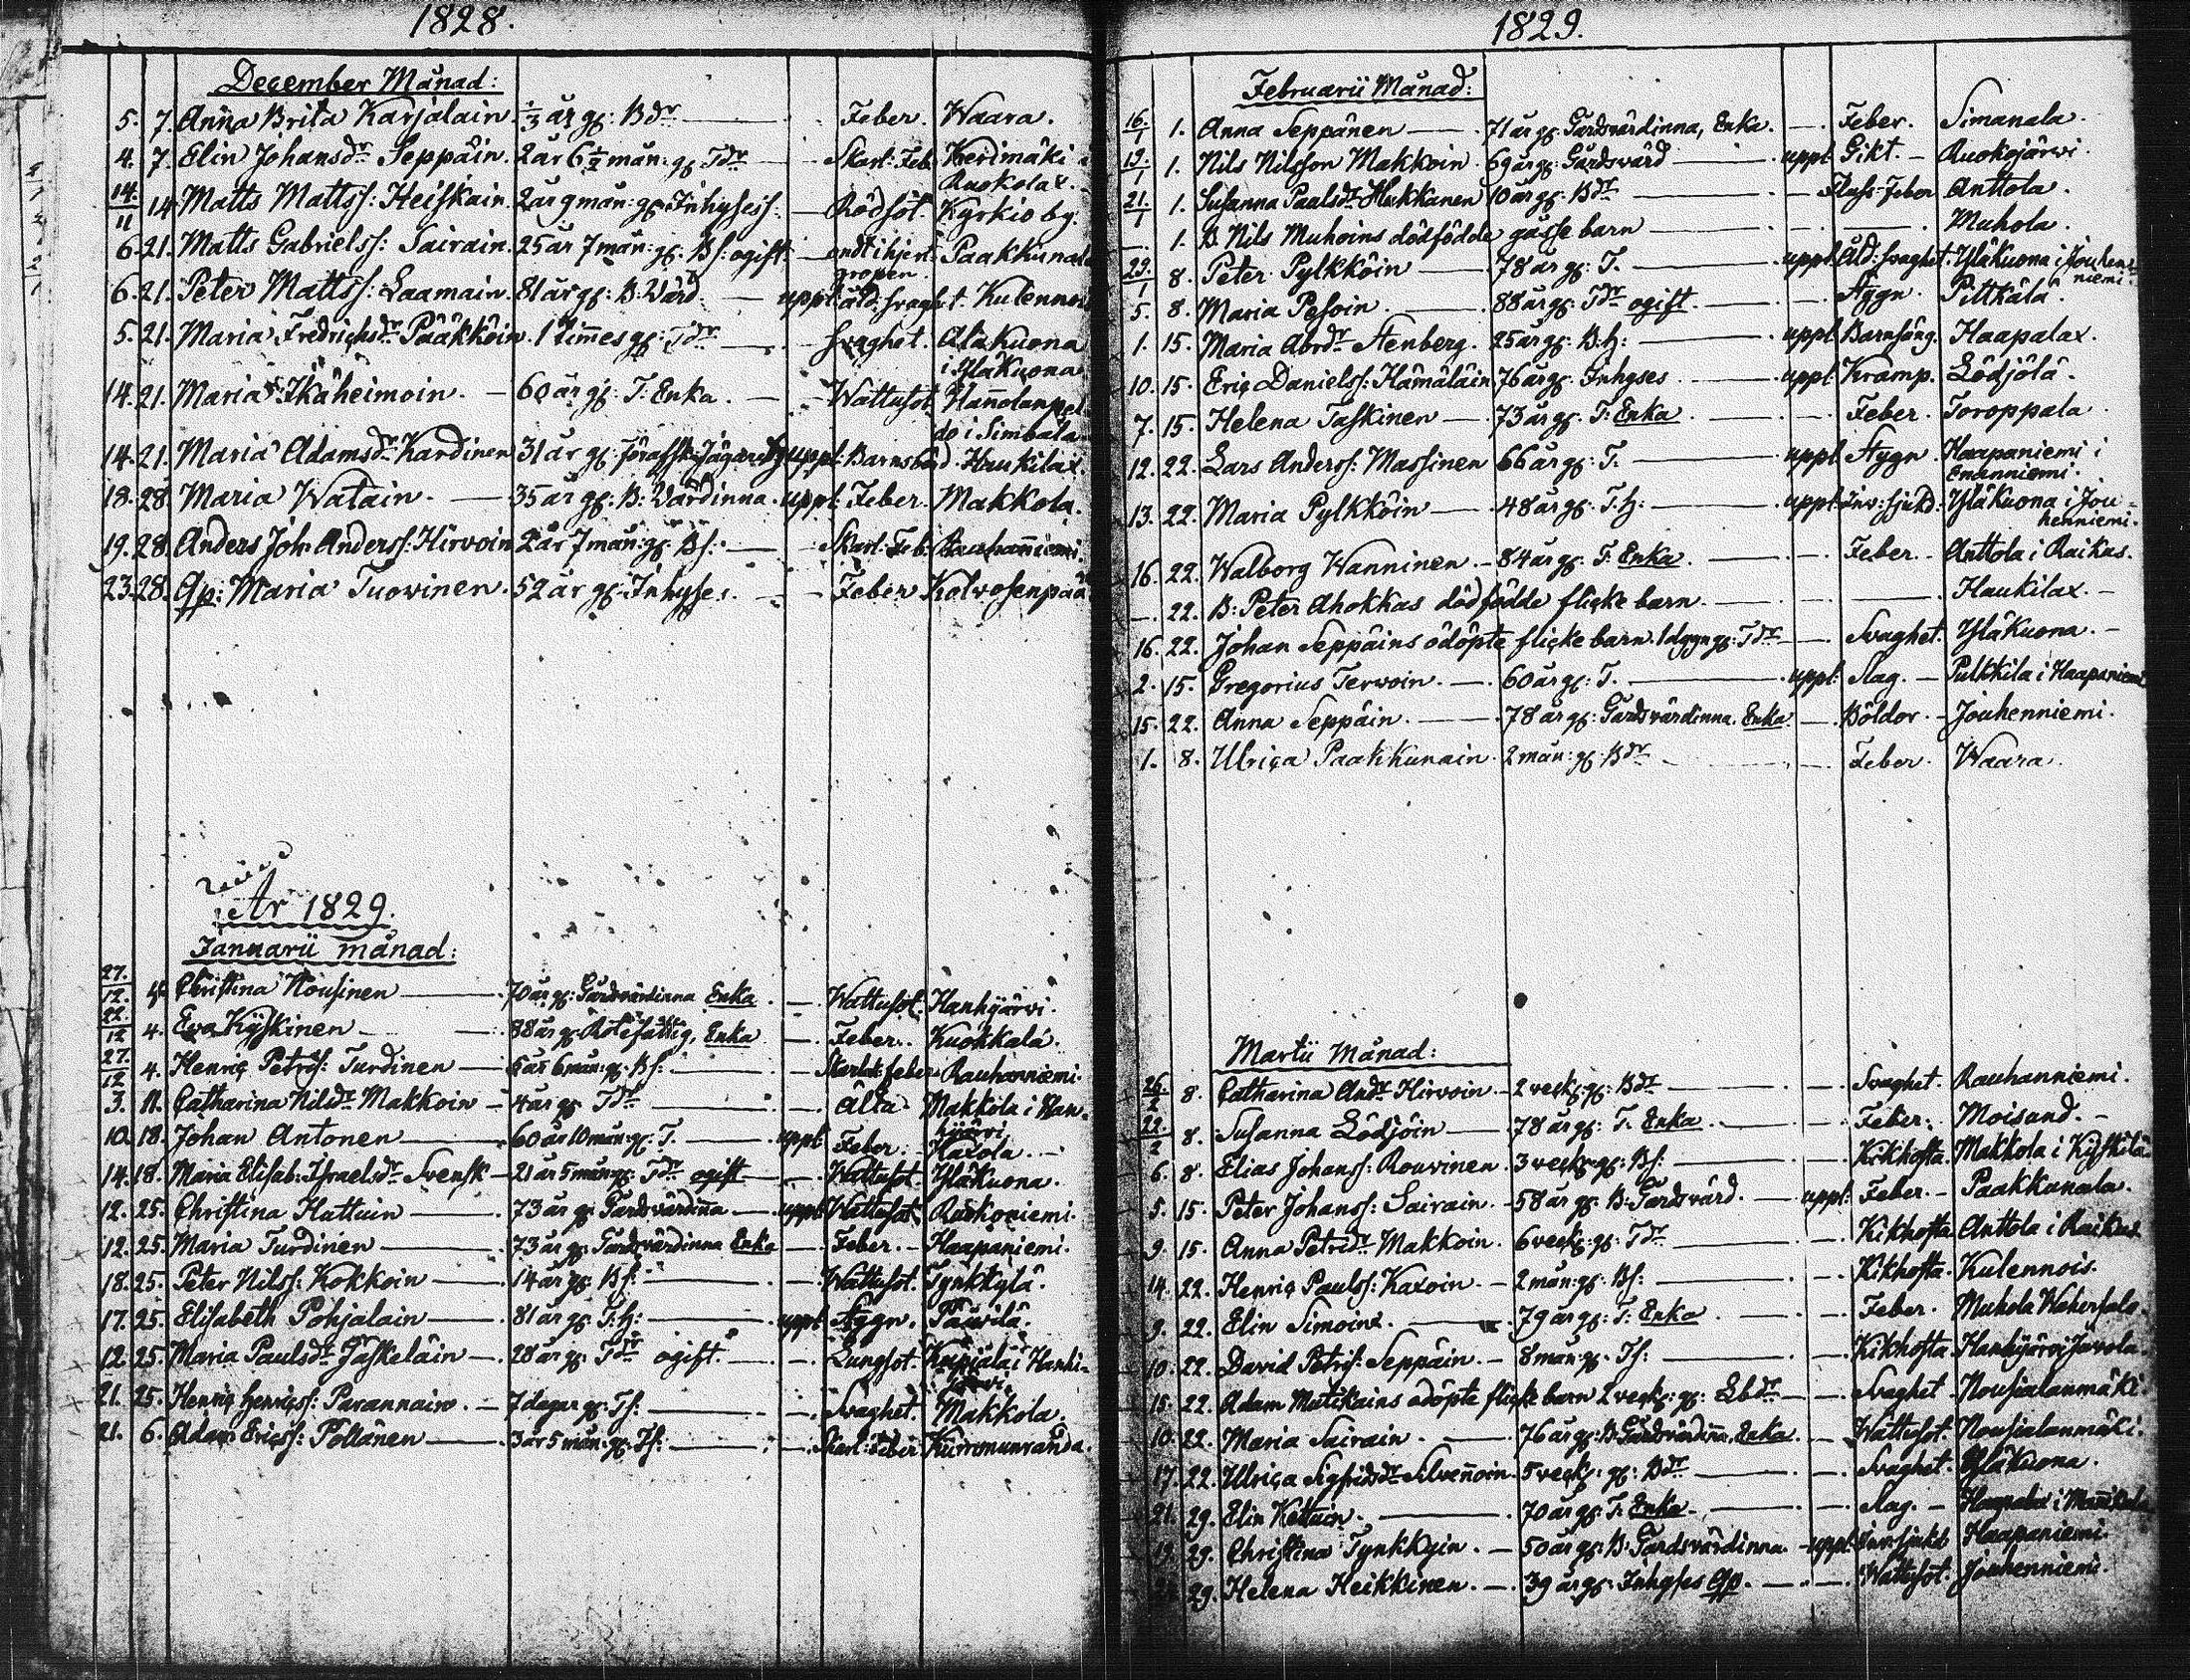 1828.
December Månad:
5. 7. Anna Brita Karjalain. 1/3 år gl: Bdr Feber. Waara.
4. 7. Elin Johansdr Seppäin. 2 år 6 1/2 mån: gl Tdr Skarl: Feb. Kerimäki
14./11 14. Matts Mattss: Heiskain. 2 år 9 mån: gl Inhysess: Rödsot. Kyrkio by.
Ruokolax.
6. 21. Matts Gabrielss: Sairain. 25 år 7 mån: gl. Bs: ogift. ondt i hjert- Paakkunala
gropen.
6. 21. Peter Mattss: Laamain. 81 år gl: B: Wärd. uppl: åld: svaghet. Kulennois
5. 21. Maria Fredrichsdr Pääkköin. 1 timmes gl: Tdr Svaghet. Alakuona
i Yläkuona
14. 21. Maria Ikäheimoin. 60 år gl: T: Enka. Wattusot. Hannolanpel-
do i Simbala
14. 21. Maria Adamsdr Kardinen 31 år gl. uppl: Barnsbörd Haukilax.
18. 28. Maria Watain. 35 år gl: B: Wärdinna. uppl: Feber. Makkola.
19. 28. Anders Joh: Anderss: Hirvoin 2 år 7 mån: gl: Bs: Skarl: Feb. Rauhanniemi.
23. 28. Qp: Maria Tuovinen. 52 år gl. Inhyses. Feber Kolvosenpää
År 1829.
Januarii månad:
27./12. 4. Christina Nousinen 70 år gl: Gårdsvärdinna Enka Wattusot. Hanhijärvi.
22./12 4. Eva Kyskinen 88 år gl. Rotefattig, Enka Feber. Kuokkala.
27./12 4. Henric Petrss: Turdinen 6 år 6 mån: gl. Bs: Skarlak: feber Rauhanniemi.
3. 11. Catharina Nilsdr Makkoin 4 år gl Tdr Älta Makkola i Han-
hijärvi
10. 18. Johan Antonen 60 år 10 mån: gl. T. uppl: Feber. Kaxola.
14. 18. Maria Elisab: Israelsdr Svensk 21 år 5 mån gl: Tdr ogift Wattusot. Yläkuona.
12. 25. Christina Hattuin 73 år gl Gårdsvärdinna uppl: Wattusot. Ruokoniemi.
12. 25. Maria Turdinen 73 år gl. Gårdsvärdinna Enka Feber. Haapaniemi.
18. 25. Peter Nilss: Kokkoin 14 år gl. Bs: Wattusot. Tynkkylä.
17. 25. Elisabeth Pohjalain 81 år gl T:h: uppl: Styng. Pauvilä.
12. 25. Maria Paulsdr Jäskeläin 28 år gl: Tdr ogift. Lungsot. Kupiala i Hanhi-
järvi
21. 25. Henric Henricss: Parannain. 7 dagar gl: Ts: Svaghet. Makkola.
21. 6. Adam Ericss: Poltänen 3 år 5 mån: gl. Ts: Skarl: Feber Kurromunranda.
1829.
Februarii Månad:
16./1 1. Anna Seppänen 71 år gl: Gårdsvärdinna, Enka. Feber. Simanala.
19./1 1. Nils Nilsson Makkoin 69 år gl: Gårdsvärd uppl: Gikt. Ruokojärvi.
21./1 1. Susanna Paulsdr Hukkanen 10 år gl: Bdr Fluss-Feber Anttola.
1. B. Nils Muhoins dödfödde gosse barn Muhola.
29./1 8. Peter Pylkköin 78 år gl: T. uppl: Åld: svaghet. Yläkuona i Jouhen-
niemi.
5. 8. Maria Pesoin. 88 år gl: Tdr ogift. Styng. Pitkälä.
1. 15. Maria Abrdr Stenberg. 25 år gl: B.h: uppl: Barnsäng. Haapalax.
10. 15. Eric Danielss: Hämäläin 76 år gl: Inhyses uppl: Kramp. Lödjölä.
7. 15. Helena Taskinen 73 år gl: T: Enka. Feber. Toroppala.
12. 22. Lars Anderss: Massinen 66 år gl: T. uppl: Styng Haapaniemi i
Enanniemi.
13. 22. Maria Pylkköin 48 år gl: T.h: uppl: Inv: sjukd: Yläkuona i Jou-
henniemi.
16. 22. Walborg Wanninen. 84 år gl: T: Enka. Feber. Anttola i Raikus.
22. B: Peter Ahokkas dödfödde flicke barn. Haukilax.
16. 22. Johan Seppäins odöpte flicke barn. 1 dygn gl: Tdr Svaghet. Yläkuona.
2. 15. Gregorius Terwoin. 60 år gl: T. uppl: Slag. Pulkkila i Haapaniemi
15. 22. Anna Seppäin. 78 år gl: Gårdsvärdinna. Enka. Böldor. Jouhenniemi.
1. 8. Ulrica Paakkunain. 2 mån: gl: Bdr Feber. Waara.
Martii Månad:
26./2 8. Catharina Andr Hirvoin. 2 veck: gl: Bdr Svaghet. Rauhanniemi.
22./2 8. Susanna Lödjöin 78 år gl: T. Enka. Feber. Moisand.
6. 8. Elias Johanss: Rouvinen. 3 veck: gl: Bs: Kikhosta. Makkola i Kyskilä.
5. 15. Peter Johanss: Sairain. 58 år gl: B: Gårdsvärd. uppl: Feber. Paakkunala.
9. 15. Anna Petrsdr Makkoin. 6 veck: gl: Tdr Kikhosta. Anttola i Raikus
14. 22. Henric Paulss: Kaxoin. 2 mån: gl: Bs: Kikhosta. Kulennois.
9. 22. Elin Simoint. 79 år gl: T: Enka. Feber. Muhola Wekersala.
10. 22. David Petrss: Seppäin. 8 mån: gl: Ts: Kikhosta. Hanhijärvi Javola.
15. 22. Adam Mutikains odöpte flicke barn 2 veck: gl: Lbdr Svaghet. Nousialanmäki.
10. 22. Maria Sairain. 76 år gl: B: Gårdsvärdinn. Enka. Wattusot. Nousialanmäki.
17. 22. Ulrica Sigfridsdr Silvennoin 5 veck: gl: Bdr Svaghet. Yläkuona.
21. 29. Elin Kettuin. 70 år gl: T: Enka. Slag.
19. 29. Christina Tynkkyin. 50 år gl: B: Gårdsvärdinna. uppl: Inv: sjukd Haapaniemi.
29. Helena Heikkinen. 39 år gl: Inhyses Qp. Wattusot. Jouhenniemi.